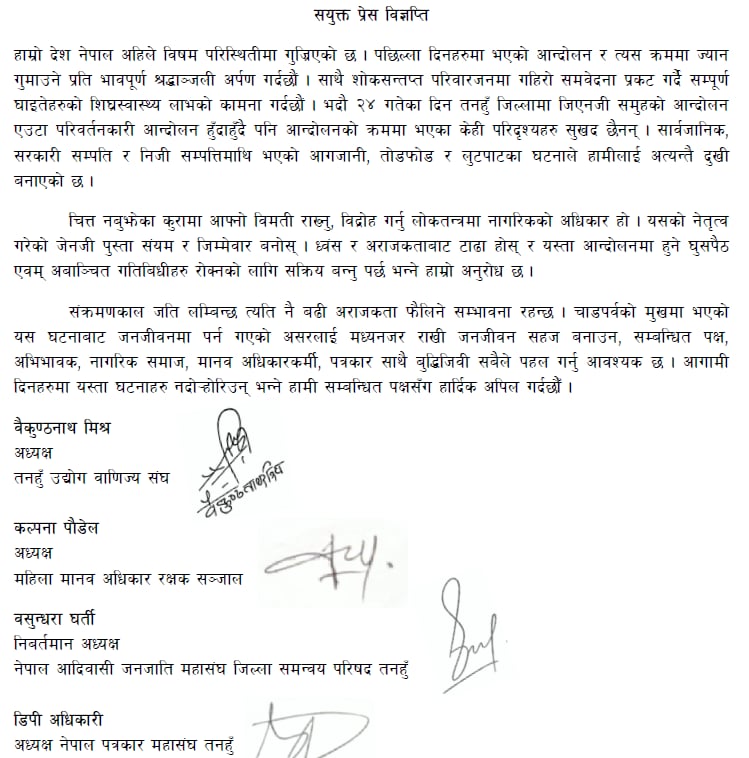 सयुक्त प्रेस विज्ञप्ति
हाम्रो देश नेपाल अहिले विषम परिस्थितीमा गुज्रिएको छ । पछिल्ला दिनहरुमा भएको आन्दोलन र त्यस क्रममा ज्यान
गुमाउने प्रति भावपूर्ण श्रद्धाञ्जली अर्पण गर्दछौं । साथै शोकसन्तप्त परिवारजनमा गहिरो समवेदना प्रकट गर्दै सम्पूर्ण
घाइतेहरुको शिघ्रस्वास्थ्य लाभको कामना गर्दछौं । भदौ २४ गतेका दिन तनहुँ जिल्लामा जिएनजी समुहको आन्दोलन
एउटा परिवर्तनकारी आन्दोलन हुँदाहुँदै पनि आन्दोलनको क्रममा भएका केही परिदृश्यहरु सुखद छैनन् । सार्वजानिक,
सरकारी सम्पति र निजी सम्पत्तिमाथि भएको आगजानी, तोडफोड र लुटपाटका घटनाले हामीलाई अत्यन्तै दुखी
बनाएको छ ।
चित्त नबुझेका कुरामा आफ्नो विमती राख्नु, विद्रोह गर्नु लोकतन्त्रमा नागरिकको अधिकार हो । यसको नेतृत्व
गरेको जेनजी पुस्ता संयम र जिम्मेवार बनोस् । ध्वंस र अराजकताबाट टाढा होस् र यस्ता आन्दोलनमा हुने घुसपैठ
एवम् अबाञ्चित गतिबिधीहरु रोक्नको लागि सक्रिय बन्नु पर्छ भन्ने हाम्रो अनुरोध छ ।
संक्रमणकाल जति लम्बिन्छ त्यति नै बढी अराजकता फैलिने सम्भावना रहन्छ । चाडपर्वको मुखमा भएको
यस घटनाबाट जनजीवनमा पर्न गएको असरलाई मध्यनजर राखी जनजीवन सहज बनाउन, सम्बन्धित पक्ष,
अभिभावक, नागरिक समाज, मानव अधिकारकर्मी, पत्रकार साथै बुद्धिजिवी सबैले पहल गर्नु आवश्यक छ । आगामी
दिनहरुमा यस्ता घटनाहरु नदोऱ्होरिउन् भन्ने हामी सम्बन्धित पक्षसँग हार्दिक अपिल गर्दछौं ।
वैकुण्ठनाथ मिश्र
अध्यक्ष
तनहुँ उद्योग वाणिज्य संघ
वैकुण्ठनाथ मिश्र
कल्पना पौडेल
अध्यक्ष
महिला मानव अधिकार रक्षक सञ्जाल
वसुन्धरा घर्ती
निवर्तमान अध्यक्ष
नेपाल आदिवासी जनजाति महासंघ जिल्ला समन्वय परिषद तनहुँ
डिपी अधिकारी
अध्यक्ष नेपाल पत्रकार महासंघ तनहुँ